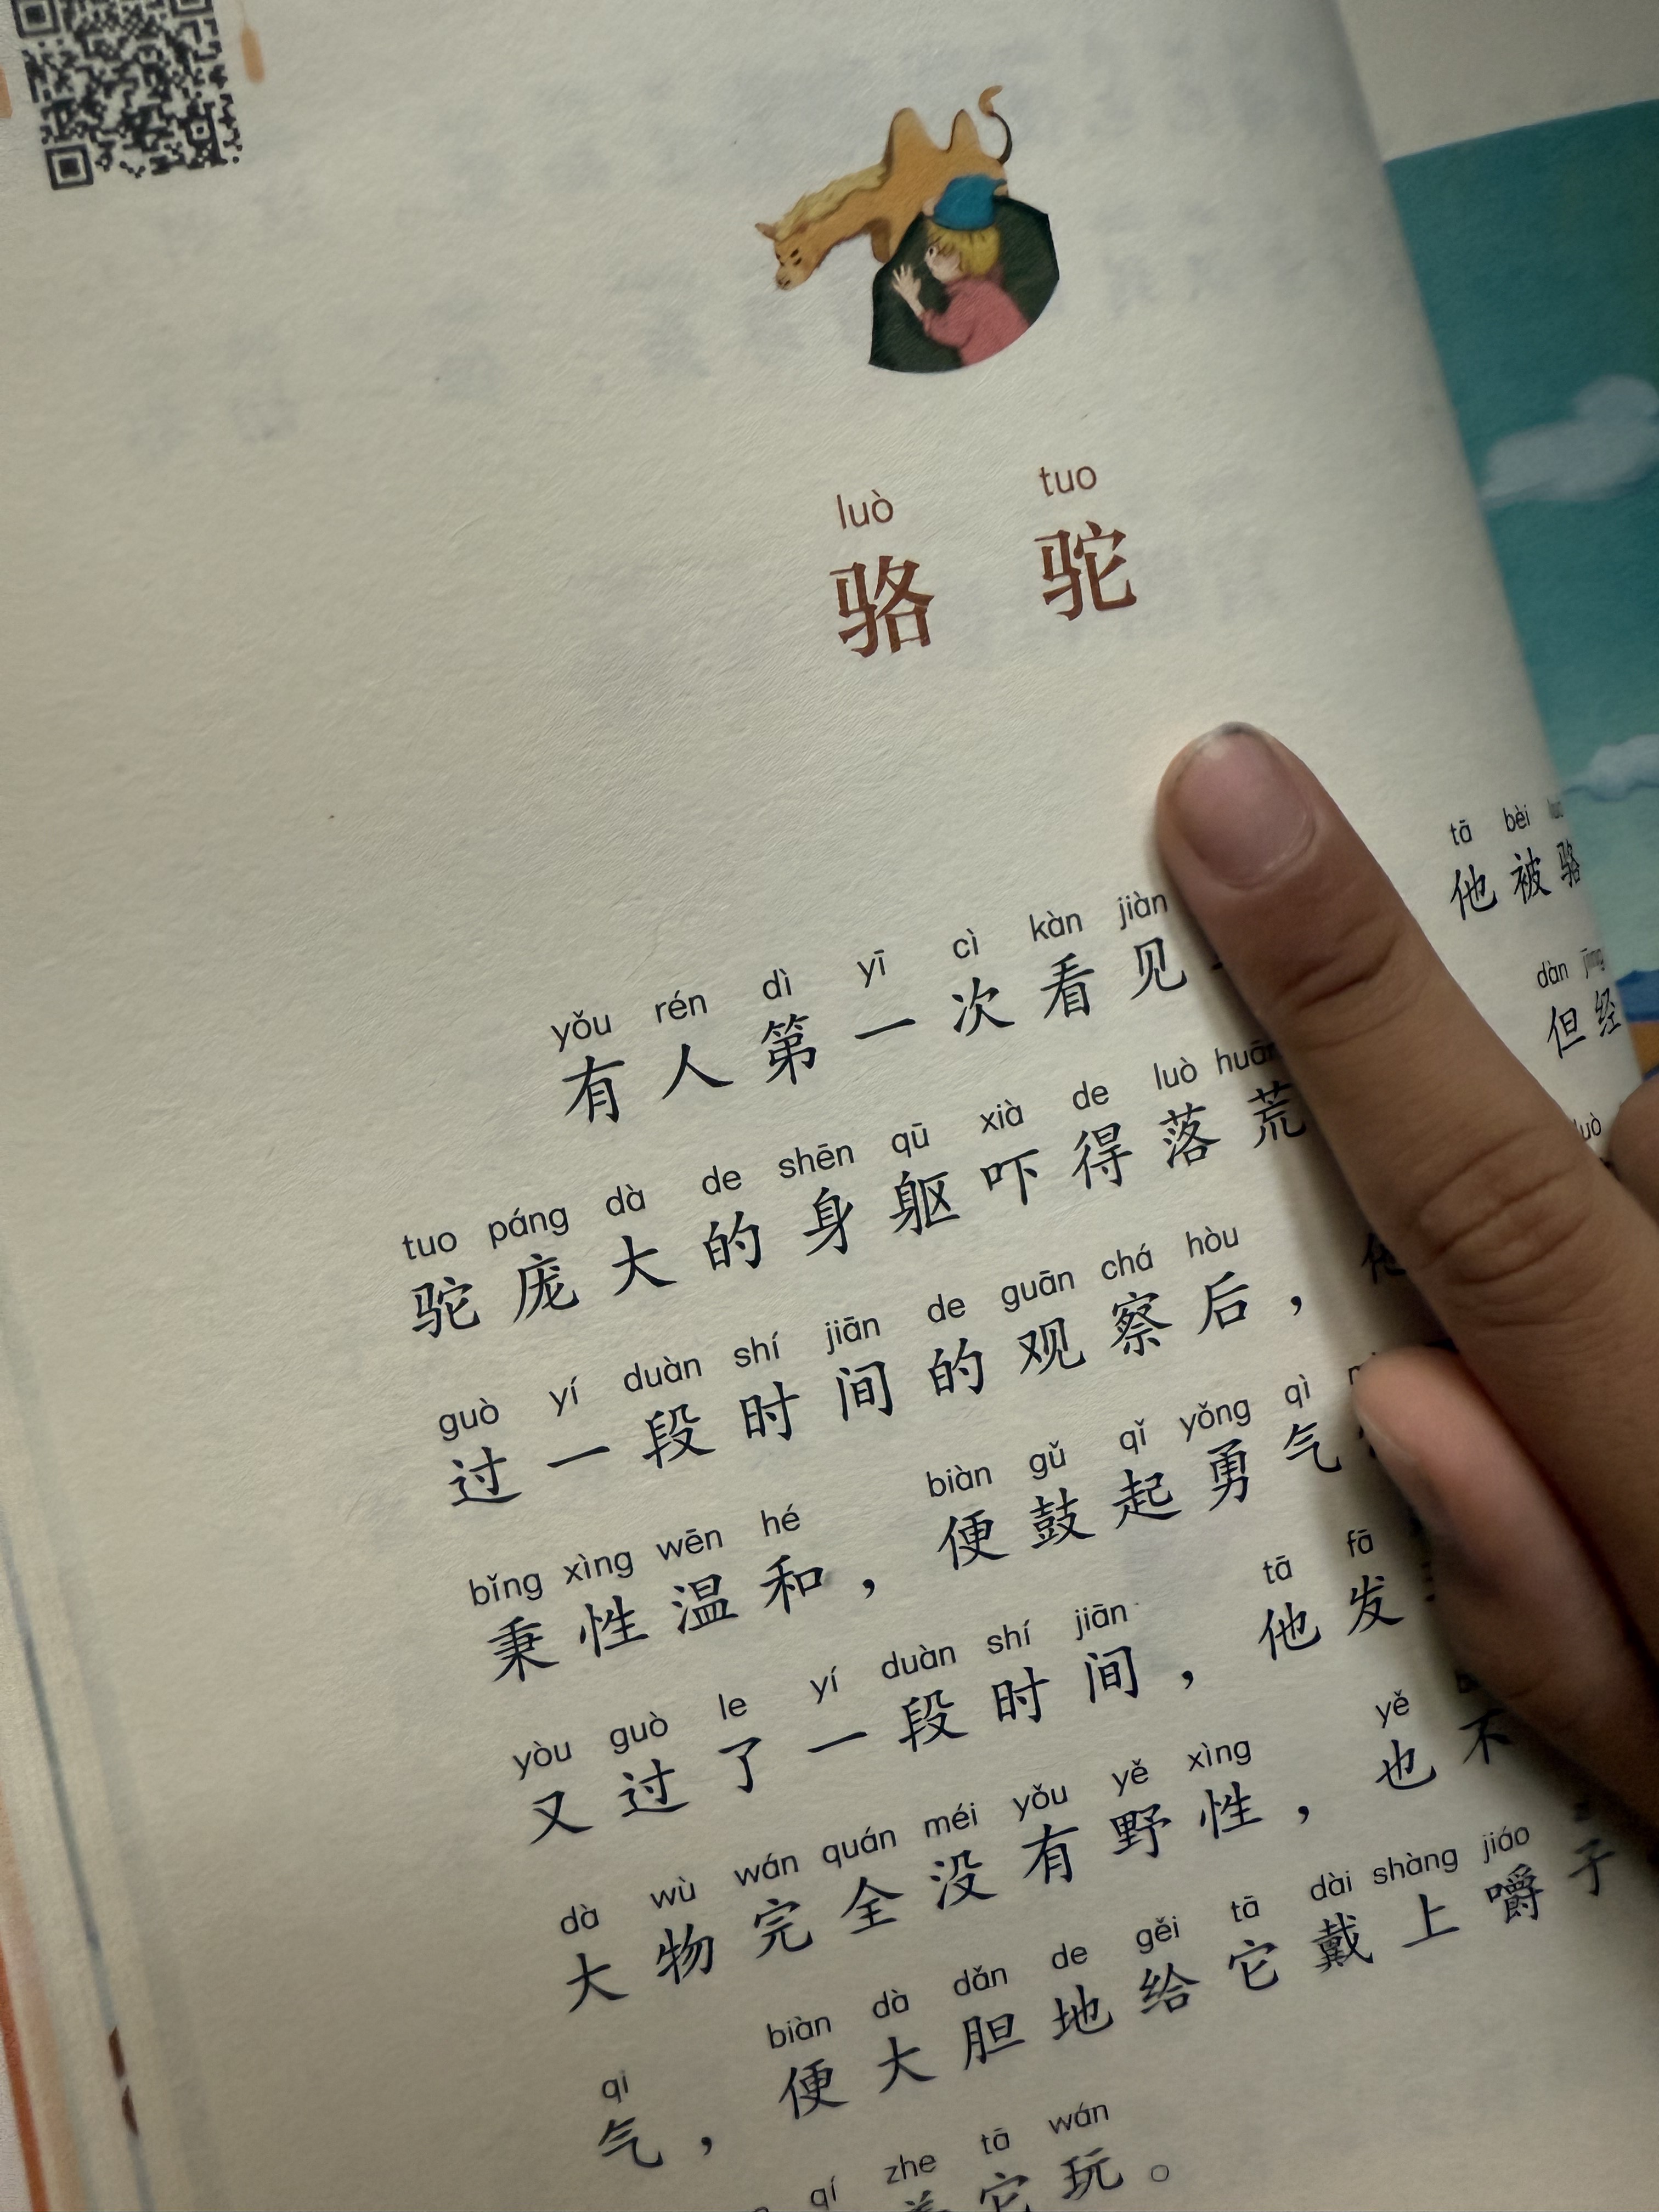 luò tuo
骆驼
yǒu rén dì yī cì kàn jiàn
有人第一次看见
tā bèi
他被骆
tuo páng dà de shēn qū xià de luò huāng
驼庞大的身躯吓得落荒
dàn jīng
但经
guò yí duàn shí jiān de guān chá hòu
过一段时间的观察后，他
bǐng xìng wēn hé biàn gǔ qǐ yǒng qì
秉性温和，便鼓起勇气
yòu guò le yí duàn shí jiān tā fā
又过了一段时间，他发
dà wù wán quán méi yǒu yě xìng yě
大物完全没有野性，也不
qi biàn dà dǎn de gěi tā dài shàng jiáo
气，便大胆地给它戴上嚼子
qí zhe tā wán
着它玩。